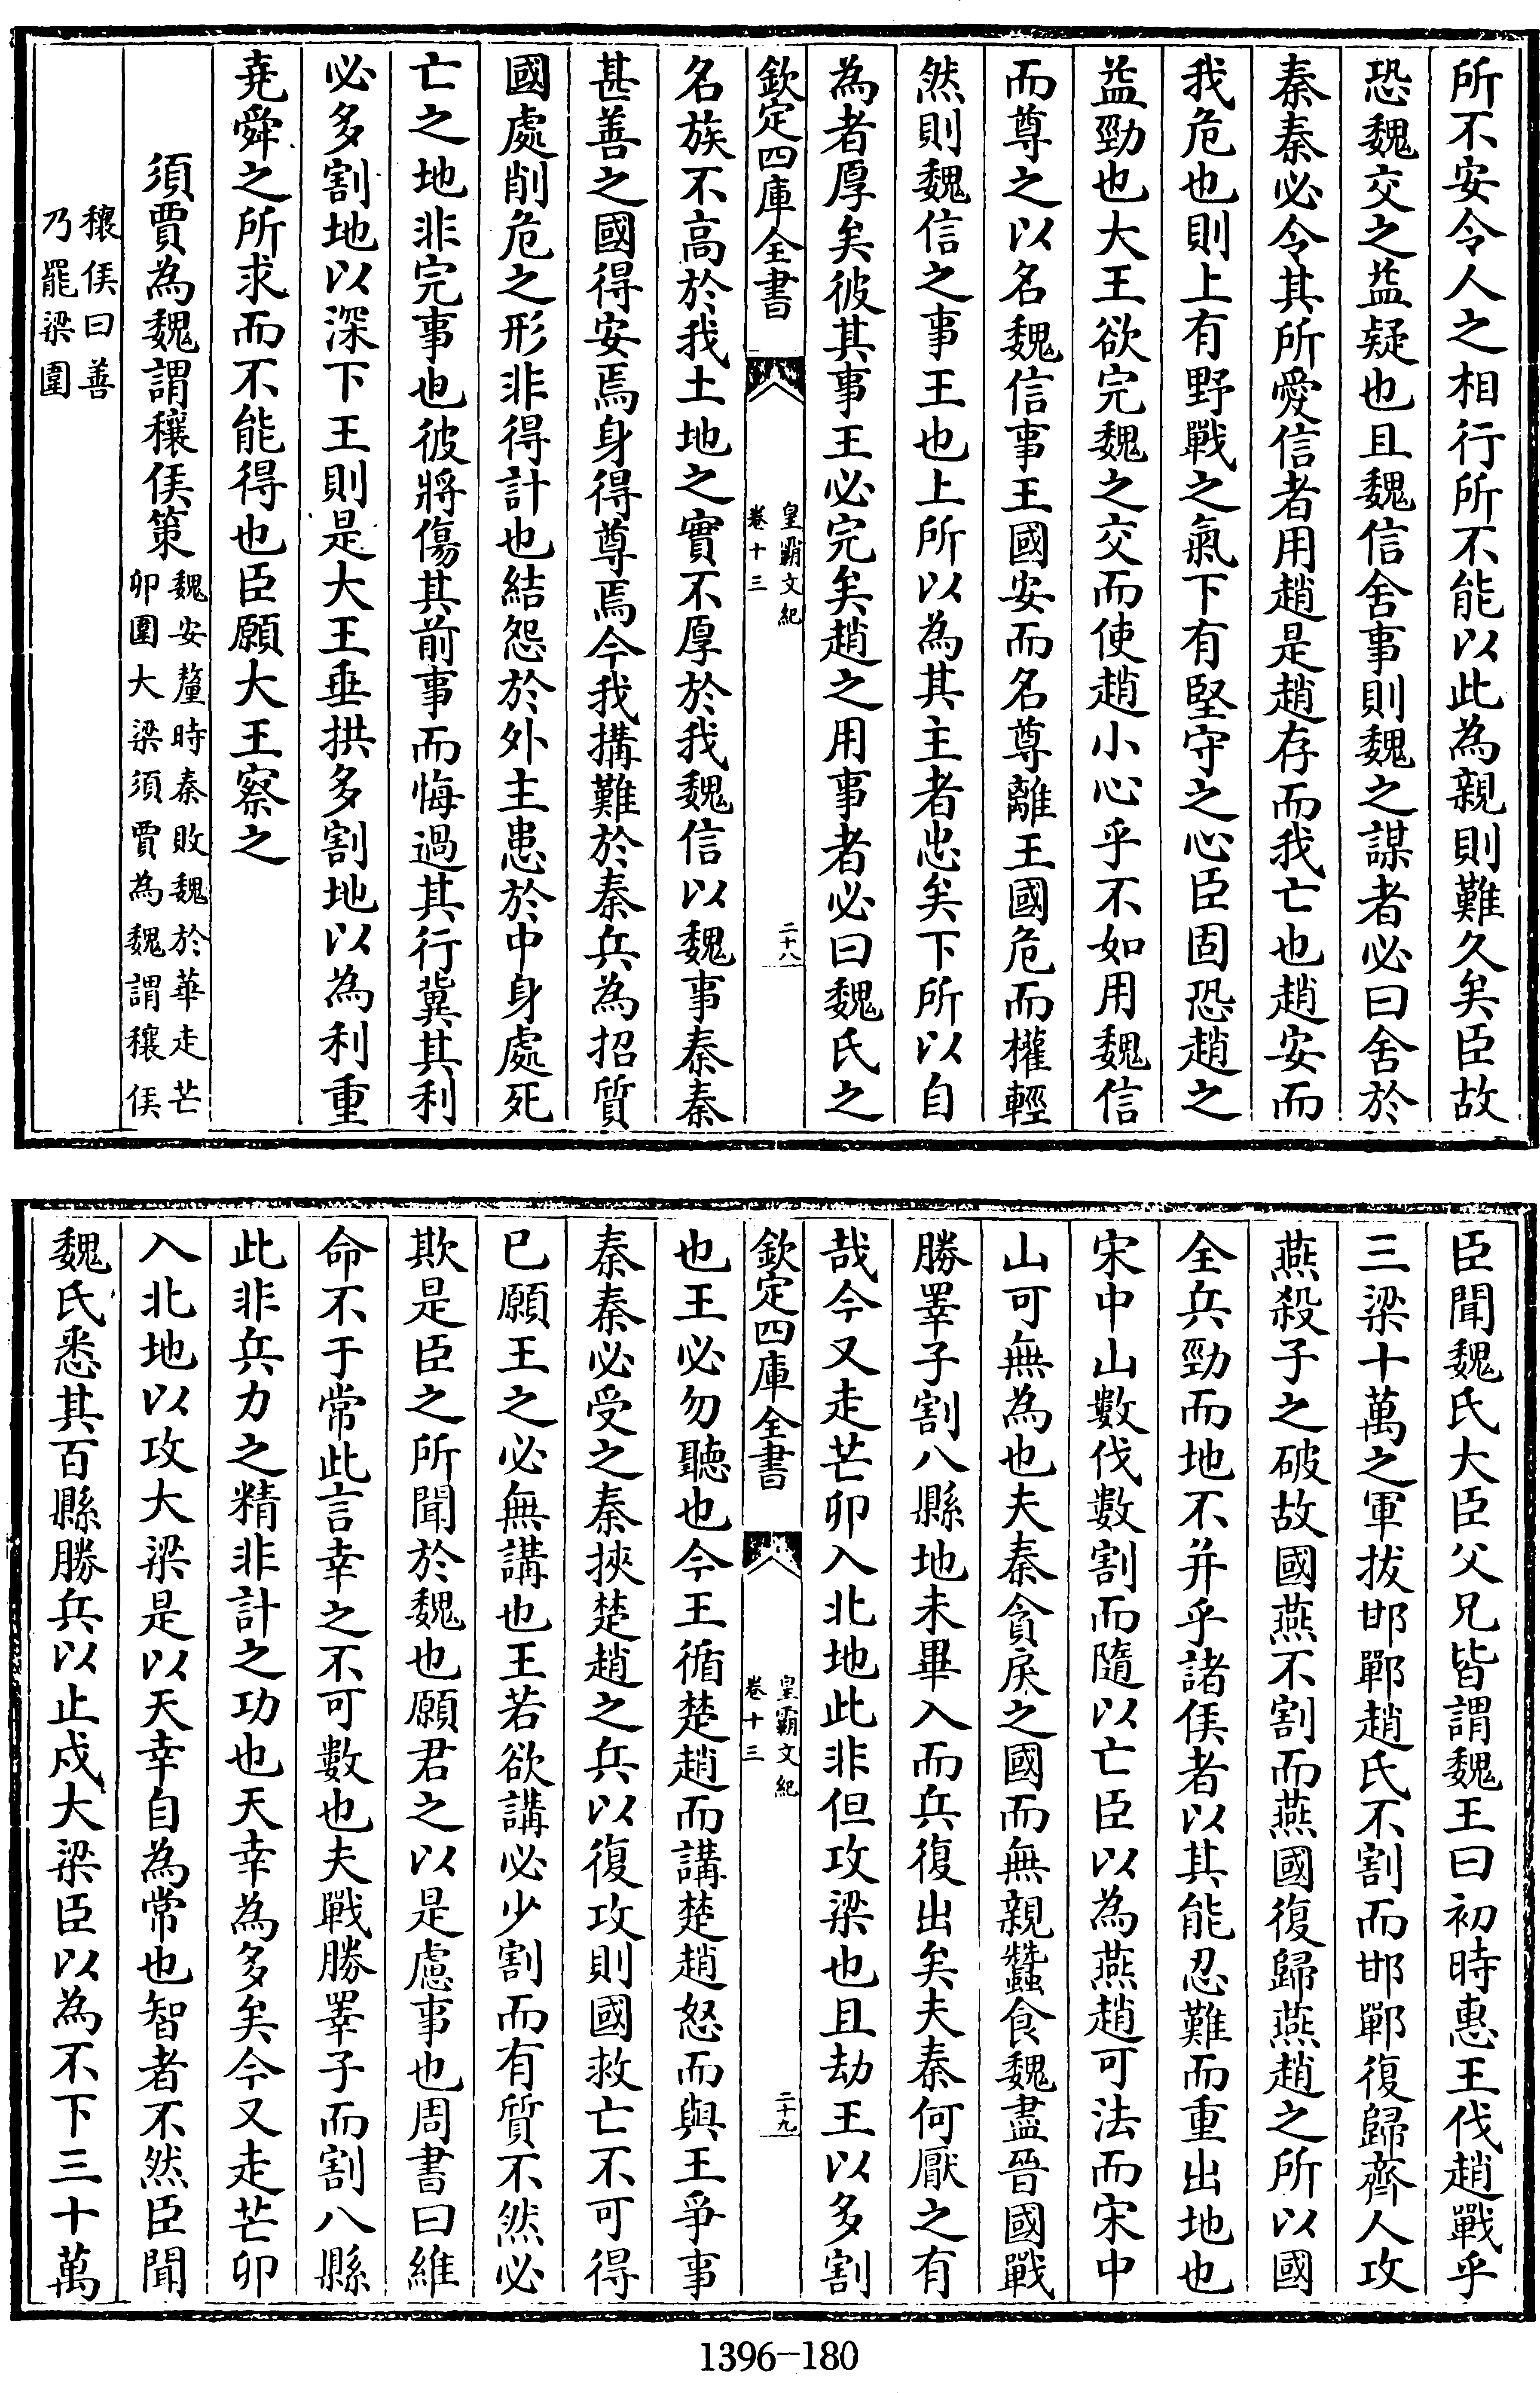 所不安令人之相行所不能以此為親則難久矣臣故
恐魏交之益疑也且魏信舍事則魏之謀者必曰舍於
秦秦必令其所愛信者用趙是趙存而我亡也趙安而
我危也則上有野戰之氣下有堅守之心臣固恐趙之
益勁也大王欲完魏之交而使趙小心乎不如用魏信
而尊之以名魏信事王國安而名尊離王國危而權輕
然則魏信之事王也上所以為其主者忠矣下所以自
為者厚矣彼其事王必完矣趙之用事者必曰魏氏之
欽定四庫全書
皇霸文紀
卷十三
二十八
名族不高於我土地之實不厚於我魏信以魏事秦秦
甚善之國得安焉身得尊焉今我搆難於秦兵為招質
國處削危之形非得計也結怨於外主患於中身處死
亡之地非完事也彼將傷其前事而悔過其行冀其利
必多割地以深下王則是大王垂拱多割地以為利重
堯舜之所求而不能得也臣願大王察之
須賈為魏謂穰侯策
魏安釐時秦敗魏於華走芒
卯圍大梁須賈為魏謂穰侯
穰侯曰善
乃罷梁圍
臣聞魏氏大臣父兄皆謂魏王曰初時惠王伐趙戰乎
三梁十萬之軍拔邯鄲趙氏不割而邯鄲復歸齊人攻
燕殺子之破故國燕不割而燕國復歸燕趙之所以國
全兵勁而地不并乎諸侯者以其能忍難而重出地也
宋中山數伐數割而隨以亡臣以為燕趙可法而宋中
山可無為也夫秦貪戾之國而無親蠶食魏盡晉國戰
勝睪子割八縣地未畢入而兵復出矣夫秦何厭之有
哉今又走芒卯入北地此非但攻梁也且劫王以多割
欽定四庫全書
皇霸文紀
卷十三
二十九
也王必勿聽也今王循楚趙而講楚趙怒而與王爭事
秦秦必受之秦挾楚趙之兵以復攻則國救亡不可得
已願王之必無講也王若欲講必少割而有質不然必
欺是臣之所聞於魏也願君之以是慮事也周書曰維
命不于常此言幸之不可數也夫戰勝睪子而割八縣
此非兵力之精非計之功也天幸為多矣今又走芒卯
入北地以攻大梁是以天幸自為常也智者不然臣聞
魏氏悉其百縣勝兵以止戍大梁臣以為不下三十萬
1396-180